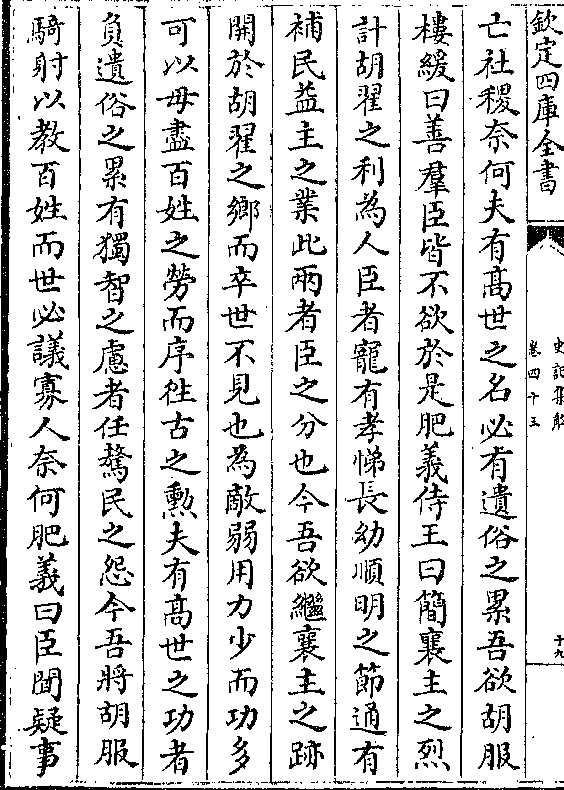 欽定四庫全書
史記集解
卷四十三
十九
亡社稷奈何夫有髙世之名必有遺俗之累吾欲胡服
樓緩曰善羣臣皆不欲於是肥義侍王曰簡襄主之烈
計胡翟之利為人臣者寵有孝悌長幼順明之節通有
補民益主之業此兩者臣之分也今吾欲繼襄主之跡
開於胡翟之鄉而卒世不見也為敵弱用力少而功多
可以毋盡百姓之勞而序徃古之勲夫有髙世之功者
負遺俗之累有獨智之慮者任驁民之怨今吾將胡服
騎射以教百姓而世必議寡人奈何肥義曰臣聞疑事